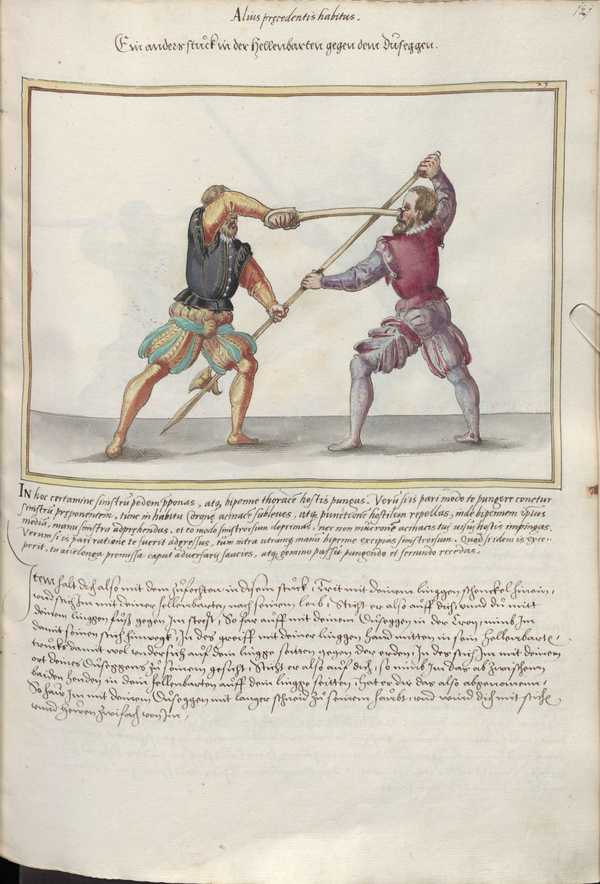 Alius præcedentis habitus.
121
Ein anders stuck in der Hellenbarten gegen dem Duseggen.
In hoc certamine sinistrũ pedem p̃ponas, atq; bipenne thoracẽ hostis pungas. Verũ si is pari modo te pungere conetur
sinistrũ præponentem, tunc in habitũ coronę acinacẽ subleues, atq; punctionẽ hostilem repellas, inde bipennem ipsius
mediã, manu sinistra adprehendas, et eo modo sinistrorsum deprimas, nec non mucronẽ acinacis tui visui hostis impingas.
Verum si is pari ratione te fuerit adgressus, tum intra utramq; manũ bipenne excipias sinistrorsum. Quod si idem is exce-
perit, tu acie longa premissa caput adversarij saucies, atq; gemino passu pungendo et feriendo recedas.
Item halt dich also mit dem zufechten in disem stuck, Trit mit deinem linggen schenckel hinein,
und stich Im mit deiner hellenbarten nach seinem leib, Sticht er also auff dich, und du mitt
deinem linggen fuß gegen Im steest, So far auff mit deinem Duseggen in der Cron, nim Im
damit seinen stich hinwegk, In des greiff mit deiner linggen hand mitten in sein hellenbarte,
truck damit wol undersich auf dein lingge seitten gegen der erden, In des stich Im mit deinem
ort deines Duseggens zu seinem gesicht, Sticht er also auf dich, so nim Im das ab zwischen
baiden henden in dein hellenbarten auff dein lingge seitten, hat er dir das also abgenomen,
So haw Im mit deinem Duseggen mit langer schneid zu seinem haubt, und wind dich mit stich
unnd hewen zwifach von Im,